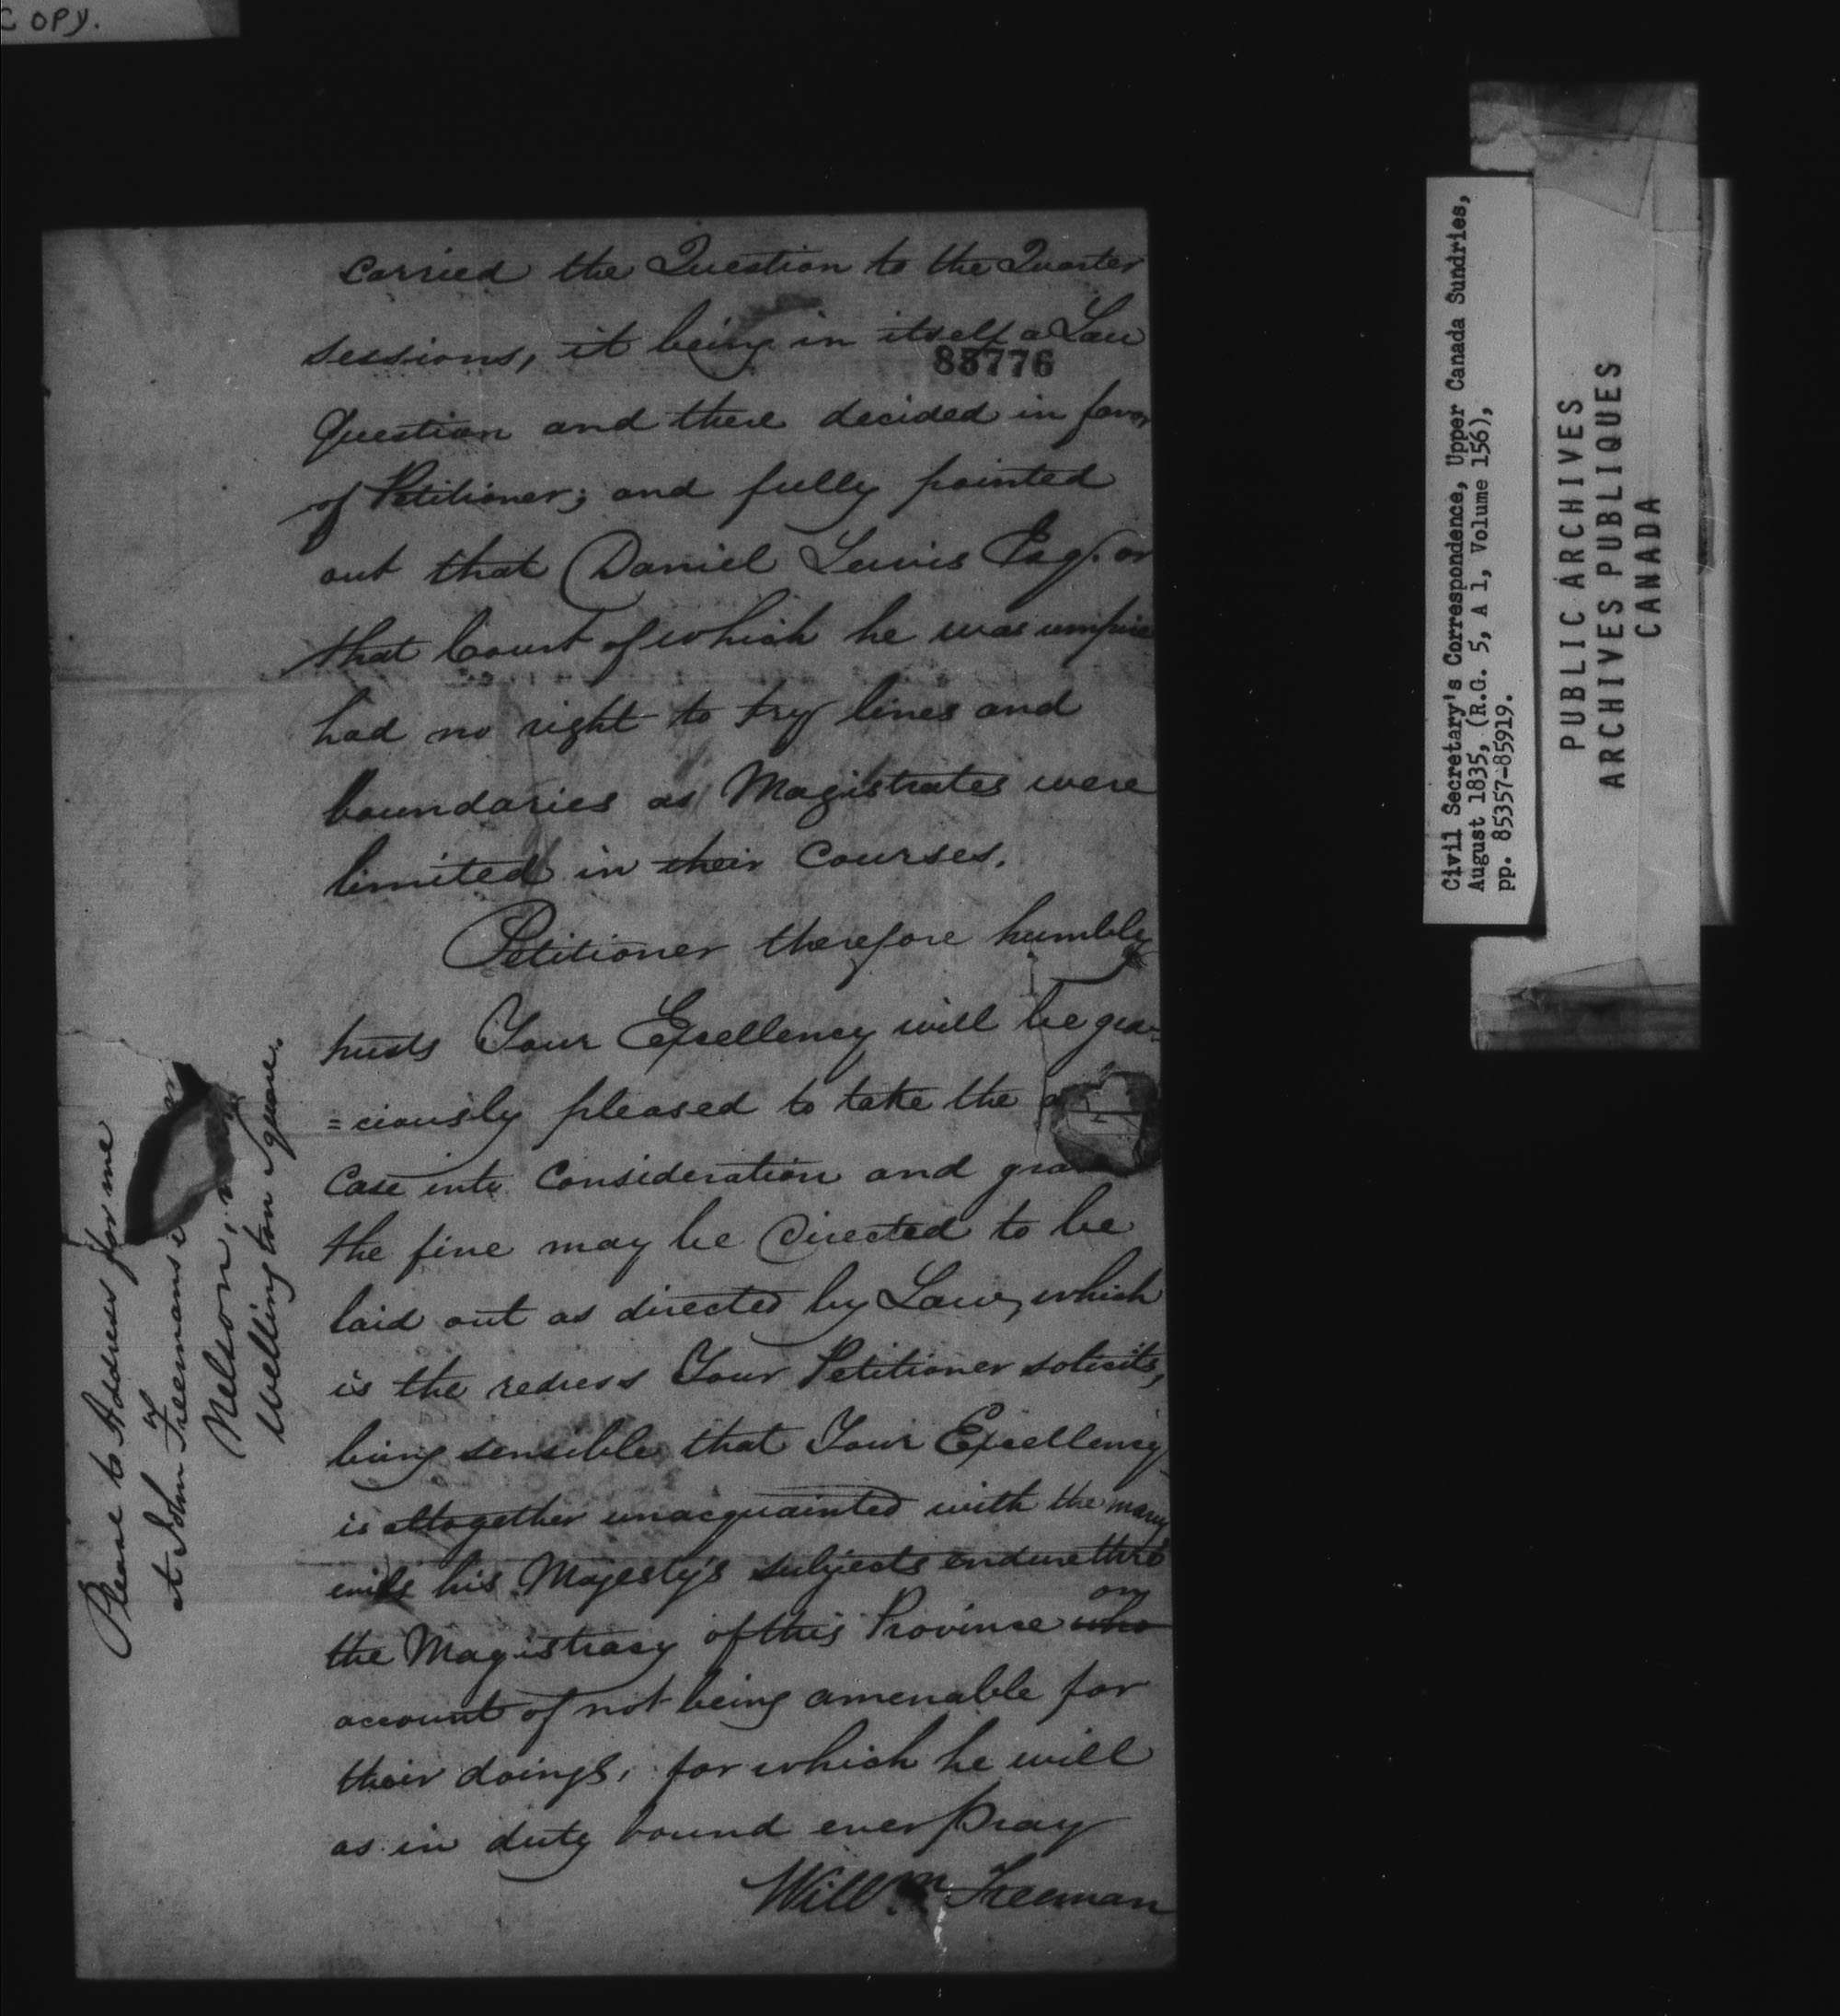 COPY.
carried the Question to the Quarter
sessions, it being in itself a Law
85776
Question and there decided in favor
of Petitioner; and fully pointed
out that Daniel Lewis Esq. or
that Court of which he was umpire
had no right to try lines and
boundaries as Magistrates were
limited in their Courses.
Petitioner therefore humbly
trusts Your Excellency will be gra-
=ciously pleased to take the
Case into Consideration and
the fine may be Directed to be
laid out as directed by Law, which
is the redress Your Petitioner solicits,
being sensible that Your Excellency
is altogether unacquainted with the many
evils his Majesty's subjects endure thro'
on
the Magistracy of this Province who
account of not being amenable for
their doings, for which he will
as in duty bound ever Pray
Willm Freeman
Please to Address for me
at John Freemans
of
Nelson,
Wellington Square.
Civil Secretary's Correspondence, Upper Canada Sundries,
August 1835, (R.G. 5, A 1, Volume 156),
pp. 85357-85919.
PUBLIC ARCHIVES
ARCHIVES PUBLIQUES
CANADA